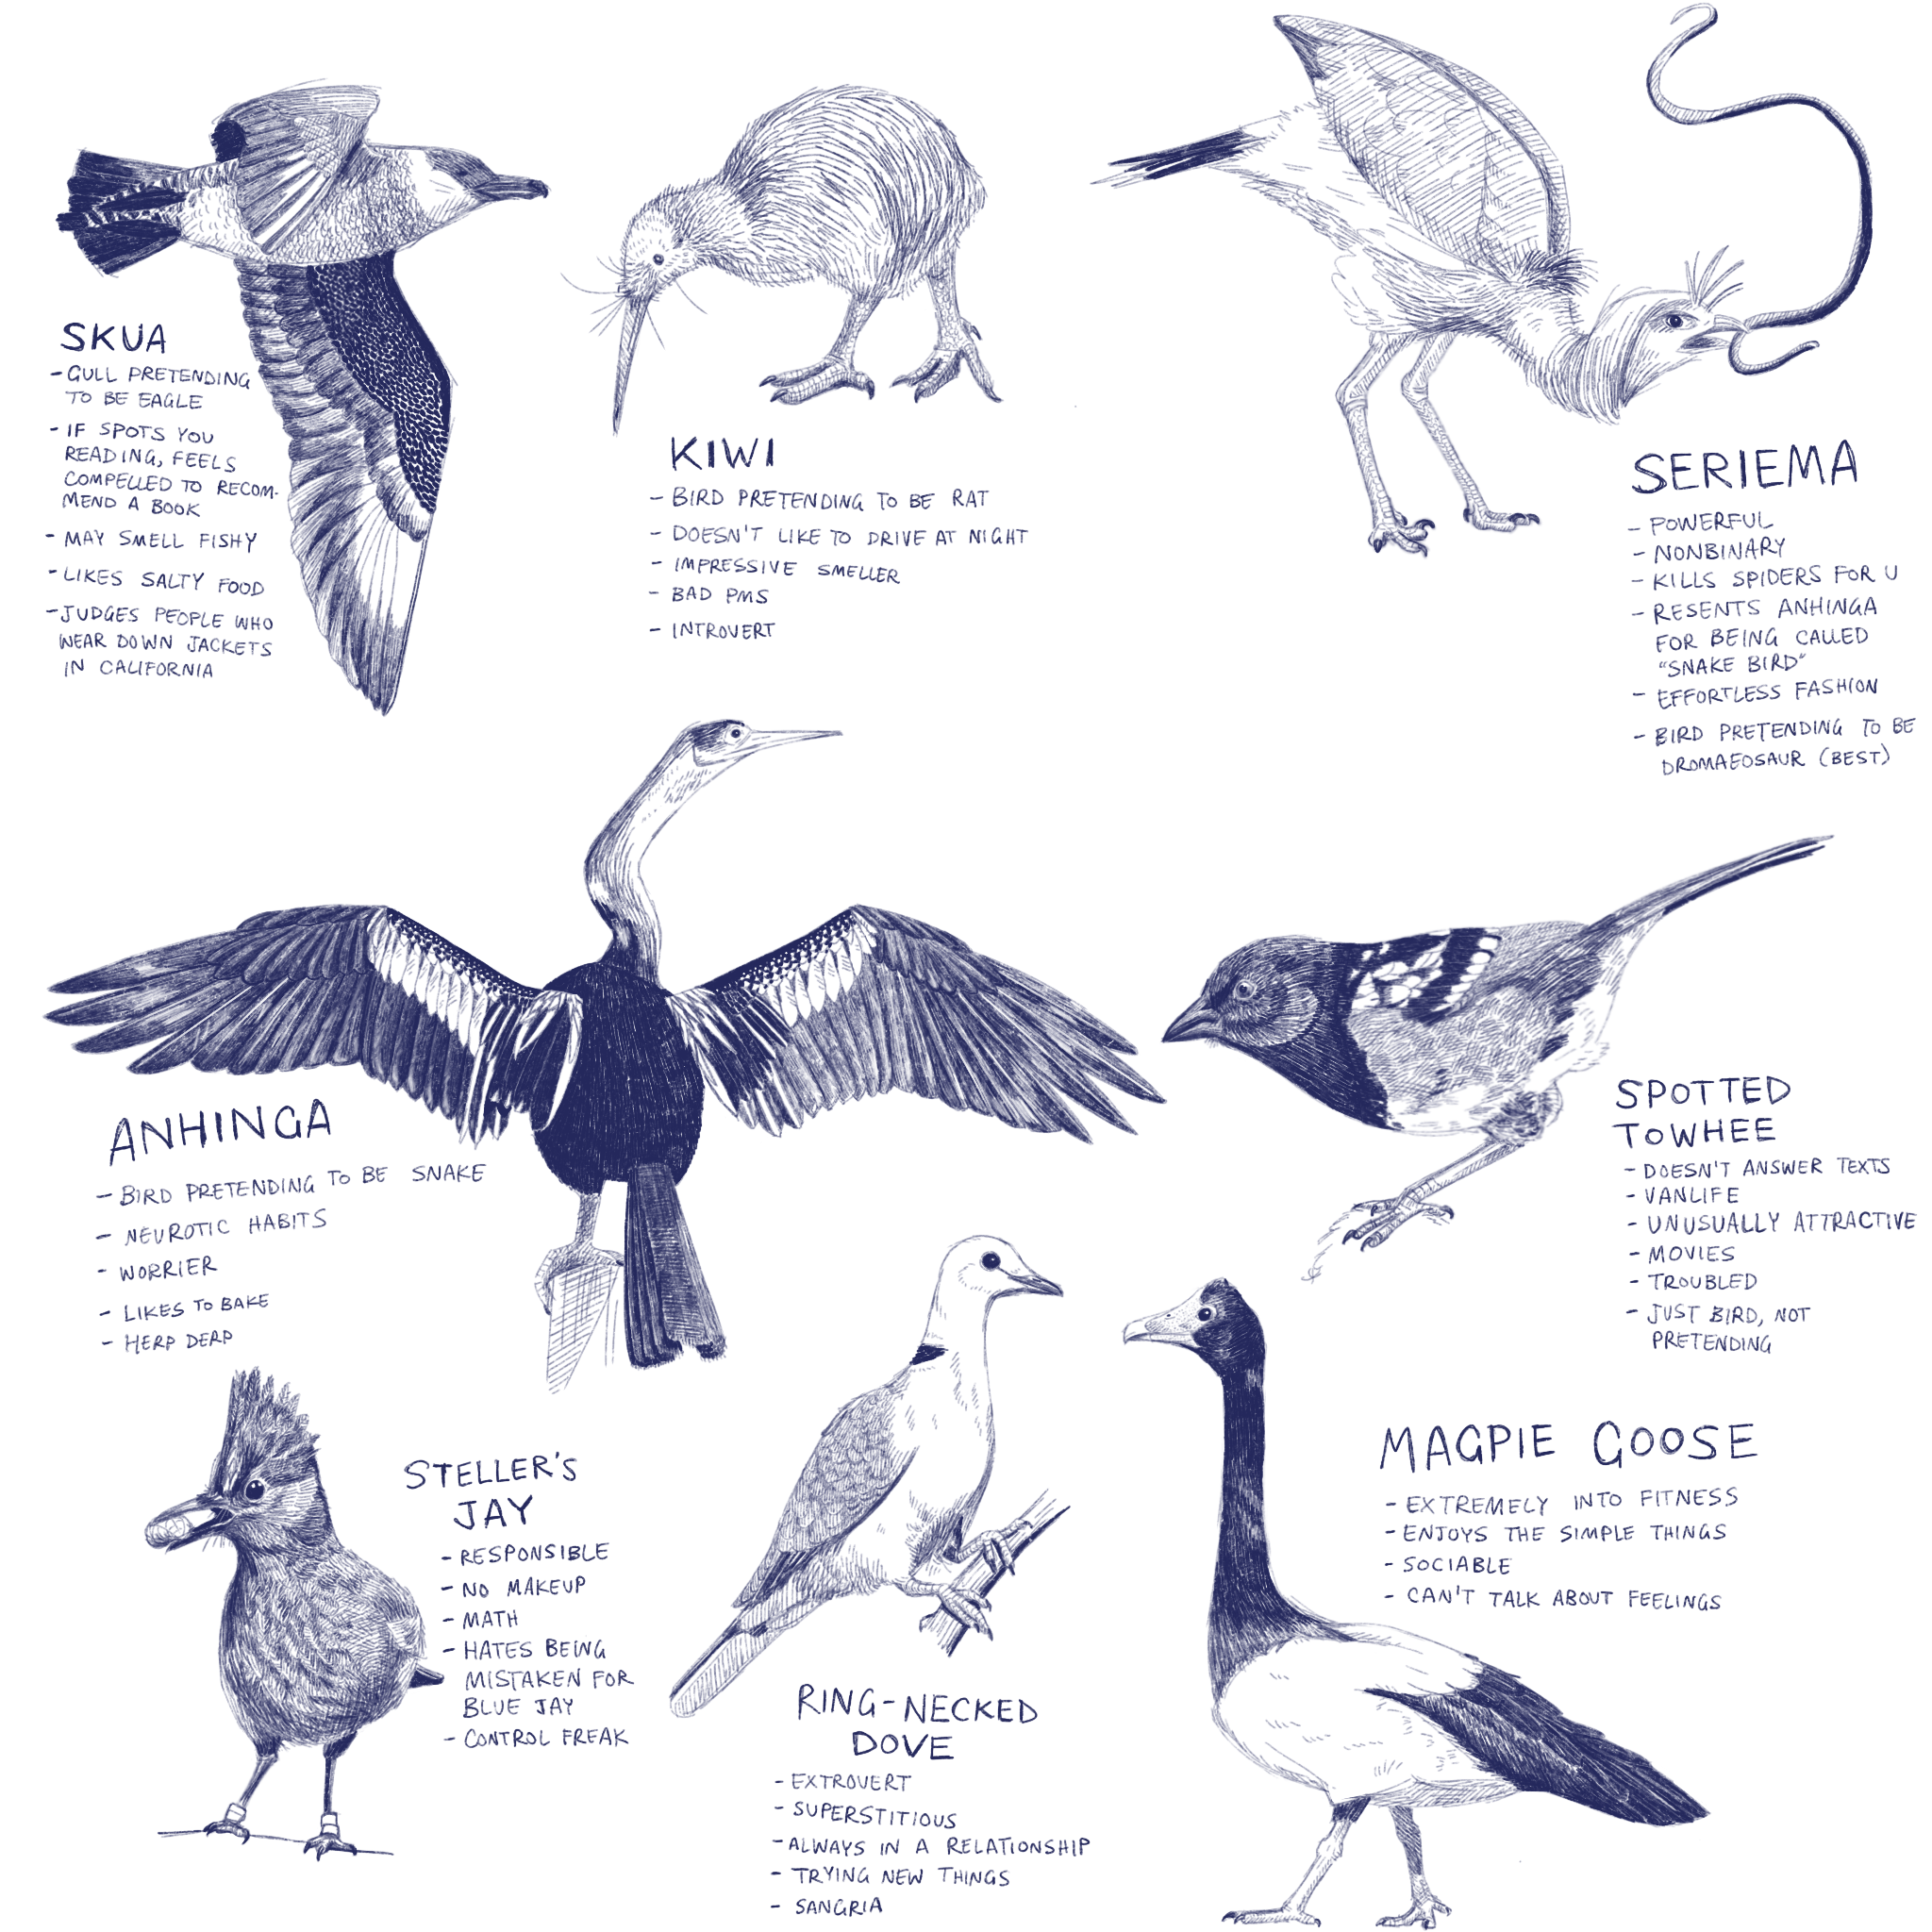 SKUA
- GULL PRETENDING
TO BE EAGLE
- IF SPOTS YOU
READING, FEELS
COMPELLED TO RECOM-
MEND A BOOK
- MAY SMELL FISHY
- LIKES SALTY FOOD
- JUDGES PEOPLE WHO
WEAR DOWN JACKETS
IN CALIFORNIA
KIWI
- BIRD PRETENDING TO BE RAT
- DOESN'T LIKE TO DRIVE AT NIGHT
- IMPRESSIVE SMELLER
- BAD PMS
- INTROVERT
SERIEMA
- POWERFUL
- NONBINARY
- KILLS SPIDERS FOR U
- RESENTS ANHINGA
FOR BEING CALLED
"SNAKE BIRD"
- EFFORTLESS FASHION
- BIRD PRETENDING TO BE
DROMAEOSAUR (BEST)
ANHINGA
- BIRD PRETENDING TO BE SNAKE
- NEUROTIC HABITS
- WORRIER
- LIKES TO BAKE
- HERP DERP
SPOTTED
TOWHEE
- DOESN'T ANSWER TEXTS
- VANLIFE
- UNUSUALLY ATTRACTIVE
- MOVIES
- TROUBLED
- JUST BIRD, NOT
PRETENDING
STELLER'S
JAY
- RESPONSIBLE
- NO MAKEUP
- MATH
- HATES BEING
MISTAKEN FOR
BLUE JAY
- CONTROL FREAK
RING-NECKED
DOVE
- EXTROVERT
- SUPERSTITIOUS
- ALWAYS IN A RELATIONSHIP
- TRYING NEW THINGS
- SANGRIA
MAGPIE GOOSE
- EXTREMELY INTO FITNESS
- ENJOYS THE SIMPLE THINGS
- SOCIABLE
- CAN'T TALK ABOUT FEELINGS